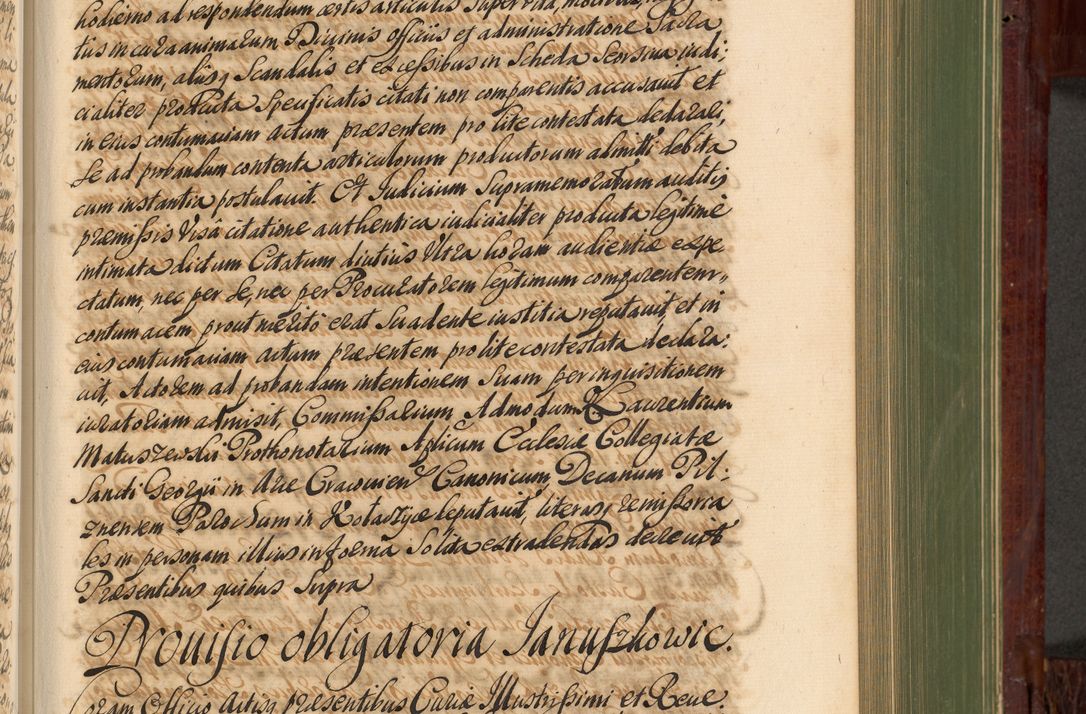 hodierno ad respondendum certis articulis super vita, moribus,
tiis in cura animarum Divinis officiis et administratione Sacra
mentorum, aliisq Scandalis et excessibus in Scheda Seorsiva iudi;
cialiter producta Specificatis citati non comparentis accusavit et
in eius contumaciam actum præsentem pro lite contestata declarari,
se ad probandum contenta articulorum productorum admitti debita
cum instantia postulavit. Et Iudicium Supramemoratum auditis
præmissis visa citatione authentica iudicialiter producta legitime
intimata dictum Citatum diutius Ultra horam audientiæ expe
ctatum, nec per se, nec per Procuratorem legitimum comparentem,,
contumacem, prout merito erat Suadente iustitia reputavit, et in
eius contumaciam actum præsentem pro lite contestata declara:
vit, Actorem ad probandam intentionem Suam per inquisitionem
iuratoriam admisit, Commissarium Admodum R Laurentium
Matuszewski Prothonotarium Aplicum Ecclesiæ Collegiatæ
Sancti Georgii in Arce Cracovien Canonicum, Decanum Pil:
znensem Parochum in Kołaczyce deputavit, literasq remissoria
les in personam illius in forma Solita extradendas decrevit
Præsentibus quibus Supra
Provisio obligatoria Januszkowic.
Coram Officio Actisq Præsentibus Curiæ Illustrissimi et Reve: